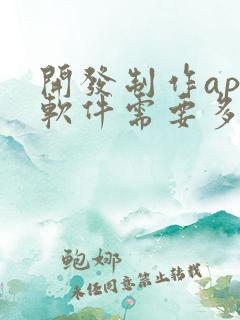 開發制作ap
軟件需要多
鲍娜
未任同意禁止转载